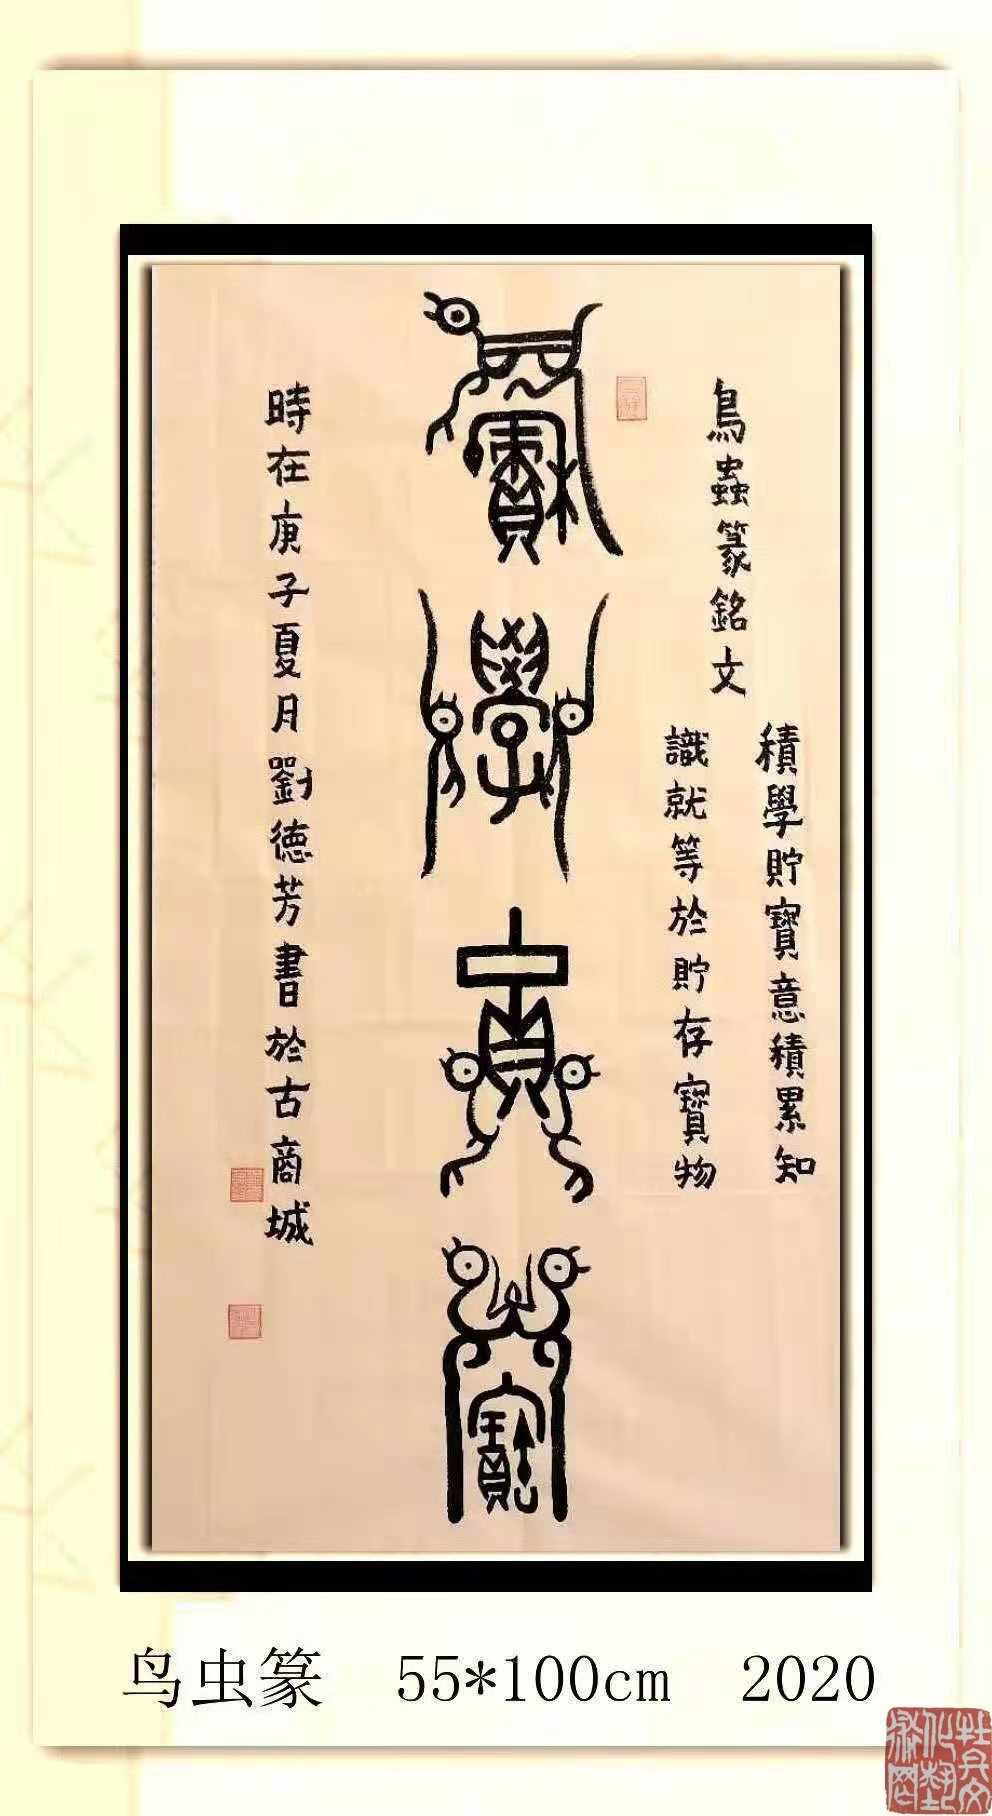 鳥蟲篆銘文
積學貯寶意積累知
識就等於貯存寶物
積學貯寶
時在庚子夏月劉德芳書於古商城
鸟虫篆 55*100cm 2020